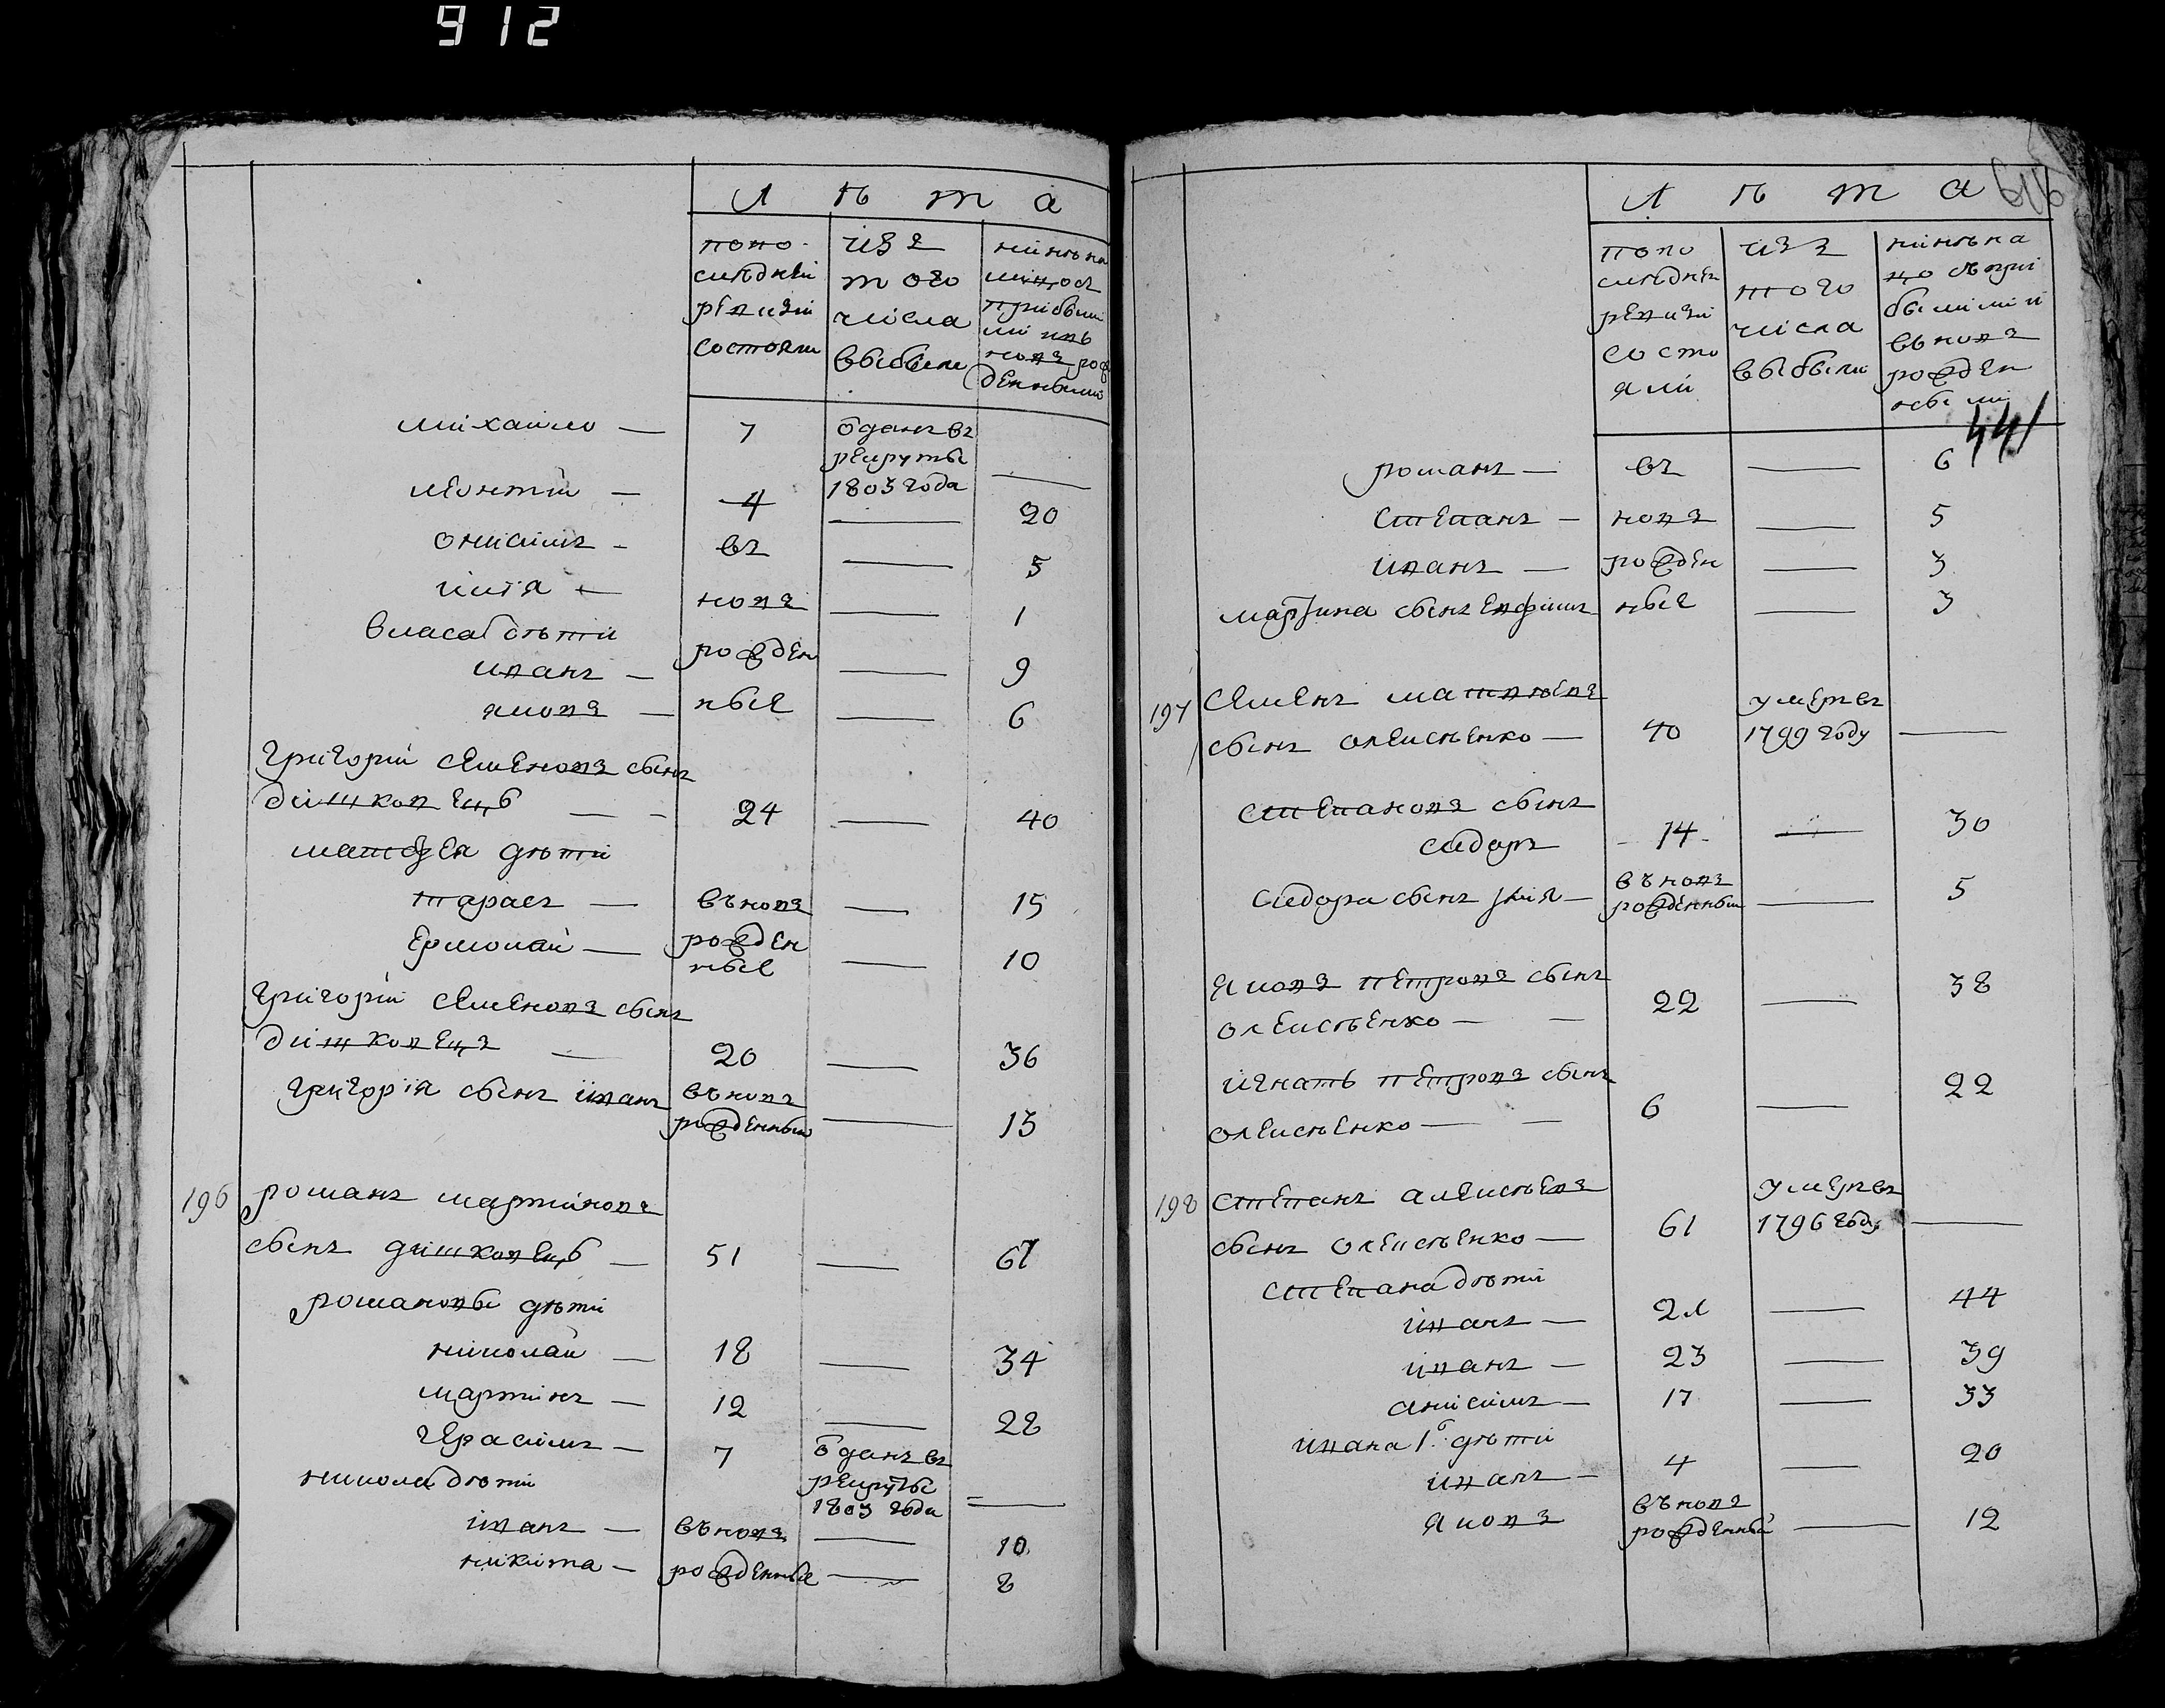 912
Л ѣ т а
по по-
слѣдней
ревизіи
состояли
изъ
того
числа
выбыли
Михайло — 7 отданъ въ
рекруты
1803 года —
Леонтій — 4 — 20
Онисимъ — въ — 5
Илія — новѣ — 1
Власа дѣти
Иванъ — рожден — 9
Яковъ — ные — 6
Григорій Семеновъ сынъ
Дишковецъ — 24 — 40
дѣти
Тарасъ — въ новѣ — 15
Ермолай — рожден
ные — 10
Григорій Семеновъ сынъ
Дишковецъ — 20 — 36
Григорія сынъ Иванъ въ новѣ
рожденный — 13
196 Романъ Мартиновъ
сынъ Дишковецъ — 51 — 67
Романовы дѣти
Николай — 18 — 34
Мартинъ — 12 — 28
Герасимъ — 7 отданъ въ
рекруты
1803 года —
Никола дѣти
Иванъ — въ новѣ — 10
Никита — рожденные — 8
Л ѣ т а
по по
слѣдней
ревизіи
состо
яли
изъ
того
числа
выбыли
441
Романъ — въ — 6
Степанъ — новѣ — 5
Иванъ — рожден — 3
Мартина сынъ Евфимъ ные — 3
197 Семенъ Матвѣевъ умеръ въ
сынъ Олексѣенко — 40 1799 году —
Степановъ сынъ
Сидоръ 14 — 30
Сидора сынъ Илія — въ новѣ
рожденный — 5
Яковъ Петровъ сынъ
Олексѣенко — 22 — 38
Игнатъ Петровъ сынъ
Олексѣенко — 6 — 22
198 Степанъ Алексѣевъ умеръ въ
сынъ Олексѣенко — 61 1796 году —
Степана дѣти
Иванъ — — 44
Иванъ — 23 — 39
Анисимъ — 17 — 33
Ивана 1.го дѣти
Иванъ — 4 — 20
Яковъ въ новѣ
рожденный — 12